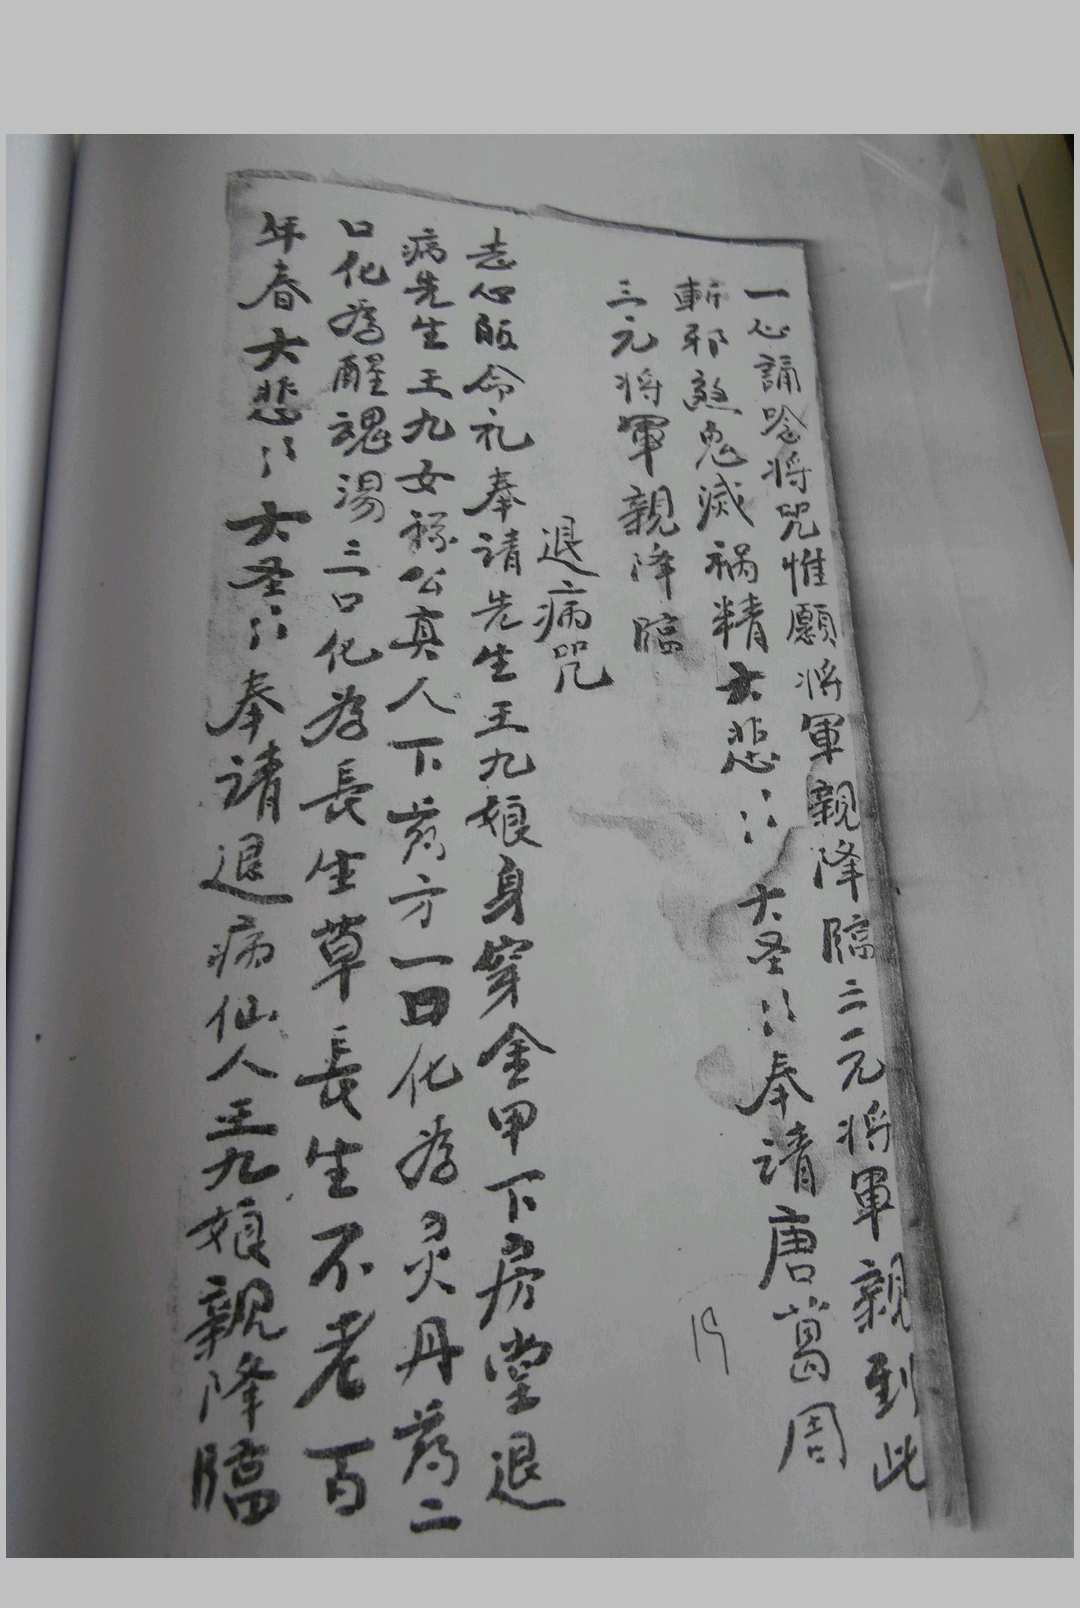 一心誦唸将咒惟願将軍親降臨三元将軍親到此
斬邪煞鬼滅禍精大悲〻大圣〻奉請唐葛周
三元将軍親降臨
退病咒
志心皈命礼奉請先生王九娘身穿金甲下房堂退
病先生王九女稱公真人下药方一口化為灵丹药二
口化為醒魂湯三口化為長生草長生不老百
年春大悲〻大圣〻奉請退病仙人王九娘親降臨
19